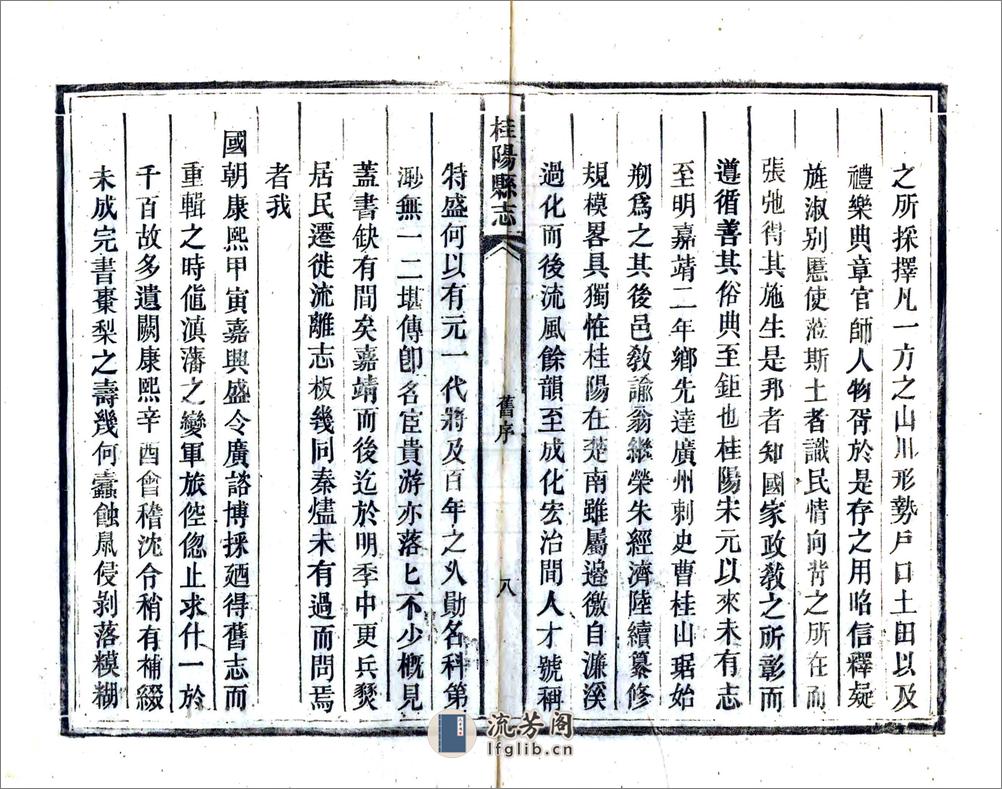 之所採擇凡一方之山川形勢戸口土田以及
禮樂典章官師人物胥於是存之用咯信釋疑
旌淑别慝使涖斯土者識民情向背之所在而
張弛得其施生是邦者知國家政敎之所彰而
遵循善其俗典至鉅也桂陽宋元以來未有志
至明嘉靖二年鄉先達廣州刺史曹桂山琚始
剏爲之其後邑敎諭翁繼榮朱經濟陸續纂修
規模畧具獨恠桂陽在楚南雖屬邊徼自濂溪
過化而後流風餘韻至成化宏治間人才號稱
桂陽縣志
舊序
八
特盛何以有元一代將及百年之久勛名科第
渺無一二堪傳卽名宦貴游亦落匕不少槪見
蓋書缺有間矣嘉靖而後迄於明季中更兵燹
居民遷徙流離志板幾同秦燼未有過而問焉
者我
國朝康熙甲寅嘉興盛令廣諮博採廼得舊志而
重輯之時值滇藩之變軍旅倥偬止求什一於
千百故多遺闕康熙辛酉會稽沈令稍有補綴
未成完書棗梨之壽幾何蠹蝕鼠侵剝落糢糊
流芳阁
lfglib.cn